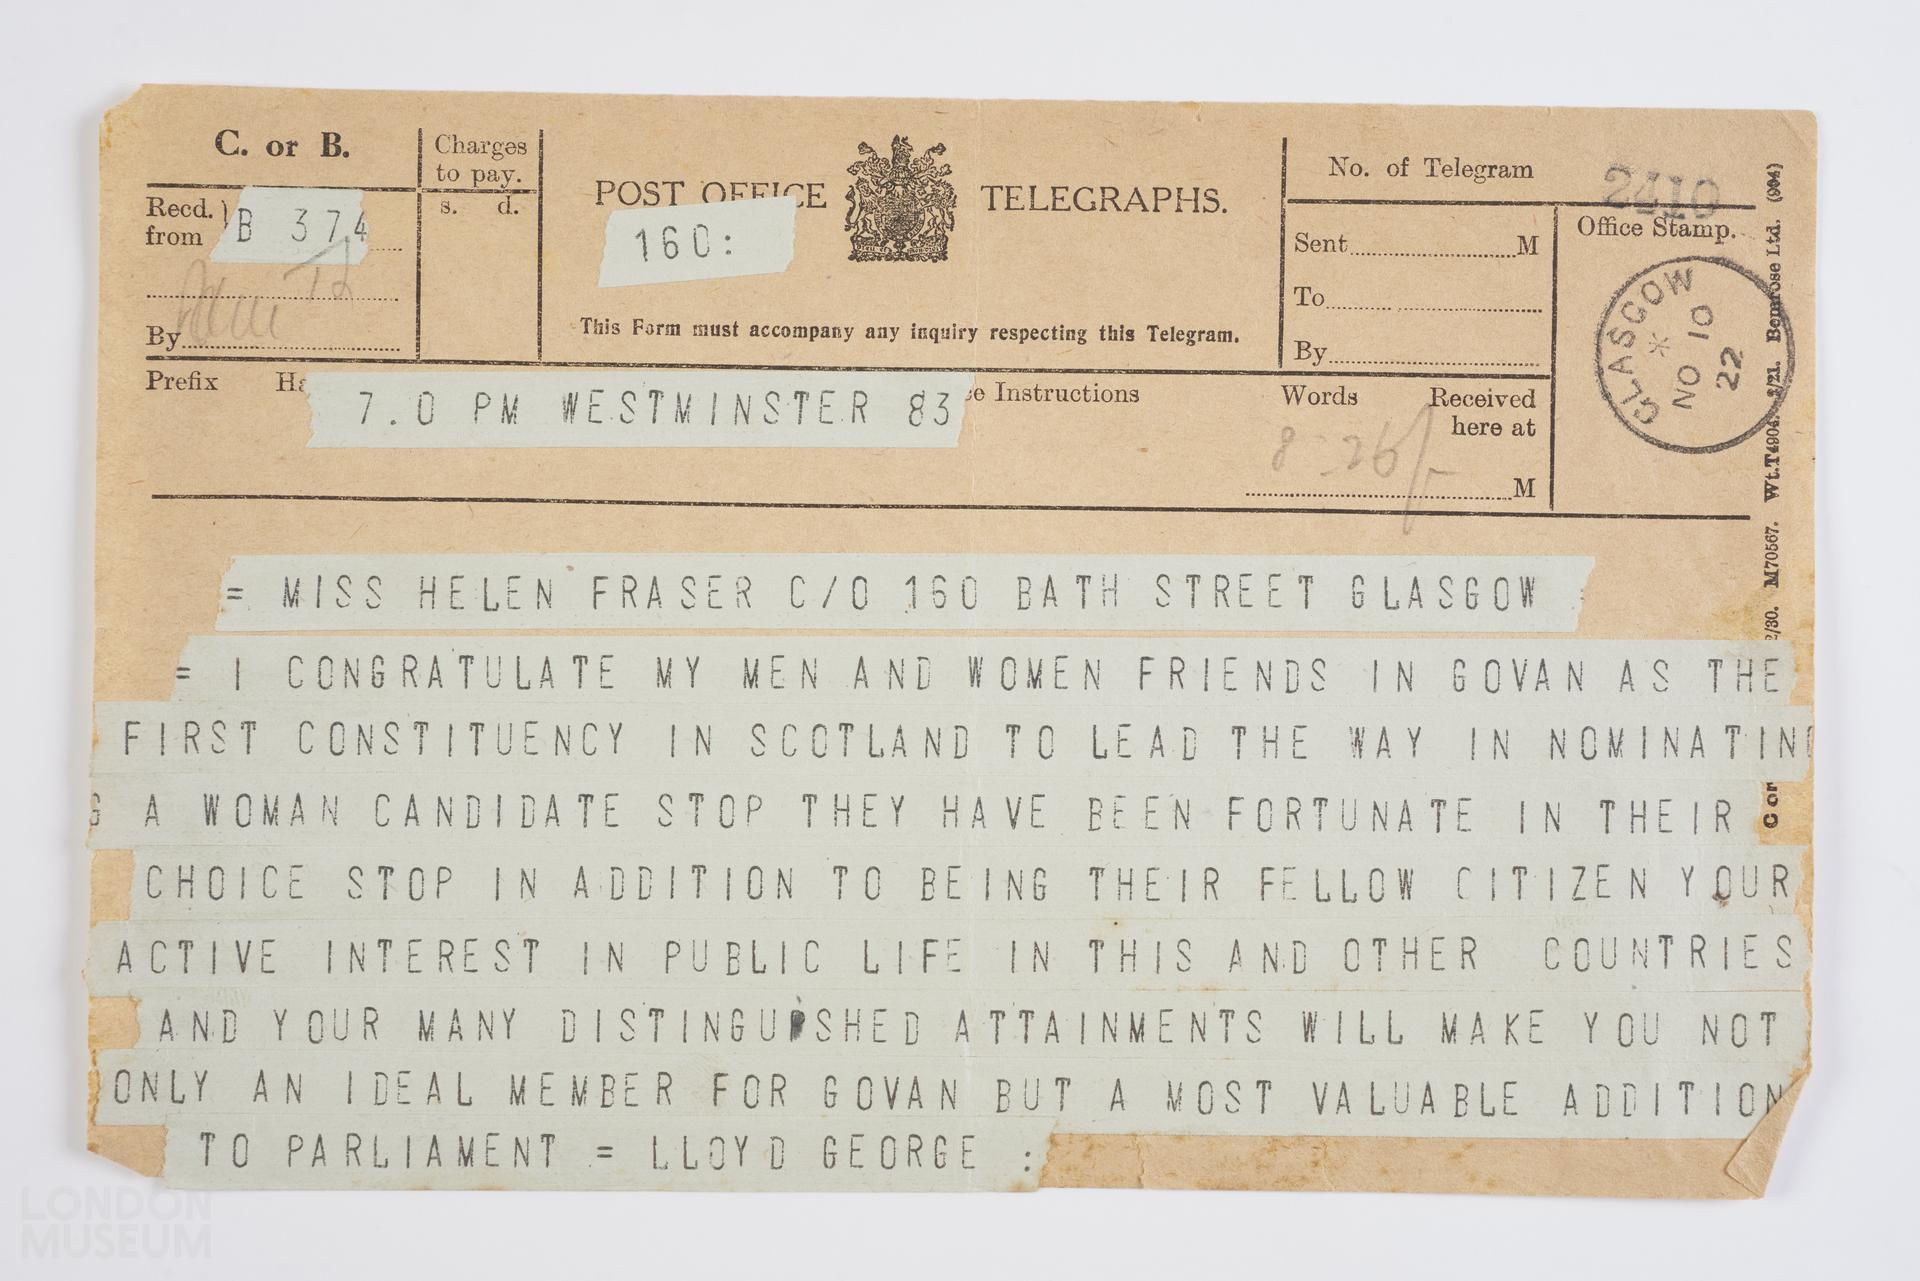 C. or B.
Charges
to pay.
s. d.
POST OFFICE TELEGRAPHS.
No. of Telegram 2410
Recd.
from
B 374
160:
Sent M
Office Stamp.
To
By
By
This Form must accompany any inquiry respecting this Telegram.
GLASGOW
NO 10
22
Prefix
7.0 PM WESTMINSTER 83
Instructions
Words
Received
here at
8
M
= MISS HELEN FRASER C/O 160 BATH STREET GLASGOW
= I CONGRATULATE MY MEN AND WOMEN FRIENDS IN GOVAN AS THE
FIRST CONSTITUENCY IN SCOTLAND TO LEAD THE WAY IN NOMINATING
G A WOMAN CANDIDATE STOP THEY HAVE BEEN FORTUNATE IN THEIR
CHOICE STOP IN ADDITION TO BEING THEIR FELLOW CITIZEN YOUR
ACTIVE INTEREST IN PUBLIC LIFE IN THIS AND OTHER COUNTRIES
AND YOUR MANY DISTINGUISHED ATTAINMENTS WILL MAKE YOU NOT
ONLY AN IDEAL MEMBER FOR GOVAN BUT A MOST VALUABLE ADDITION
TO PARLIAMENT = LLOYD GEORGE :
/30. M70567. Wt.T4904. 2/21. Bemrose Ltd. (904)
LONDON
MUSEUM